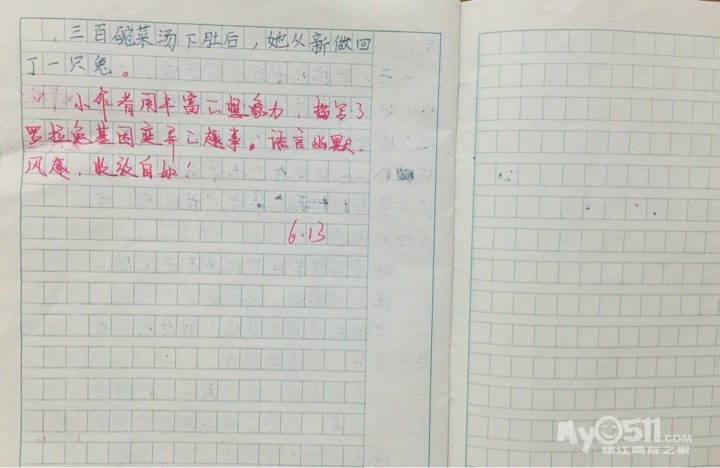 三百碗菜汤下肚后，她从新做回
了一只兔。
小作者用丰富的想象力，描写了
罗拉兔基因变异的趣事。语言幽默、
风趣，收放自如！
6.13
My0511.com
镇江网友之家